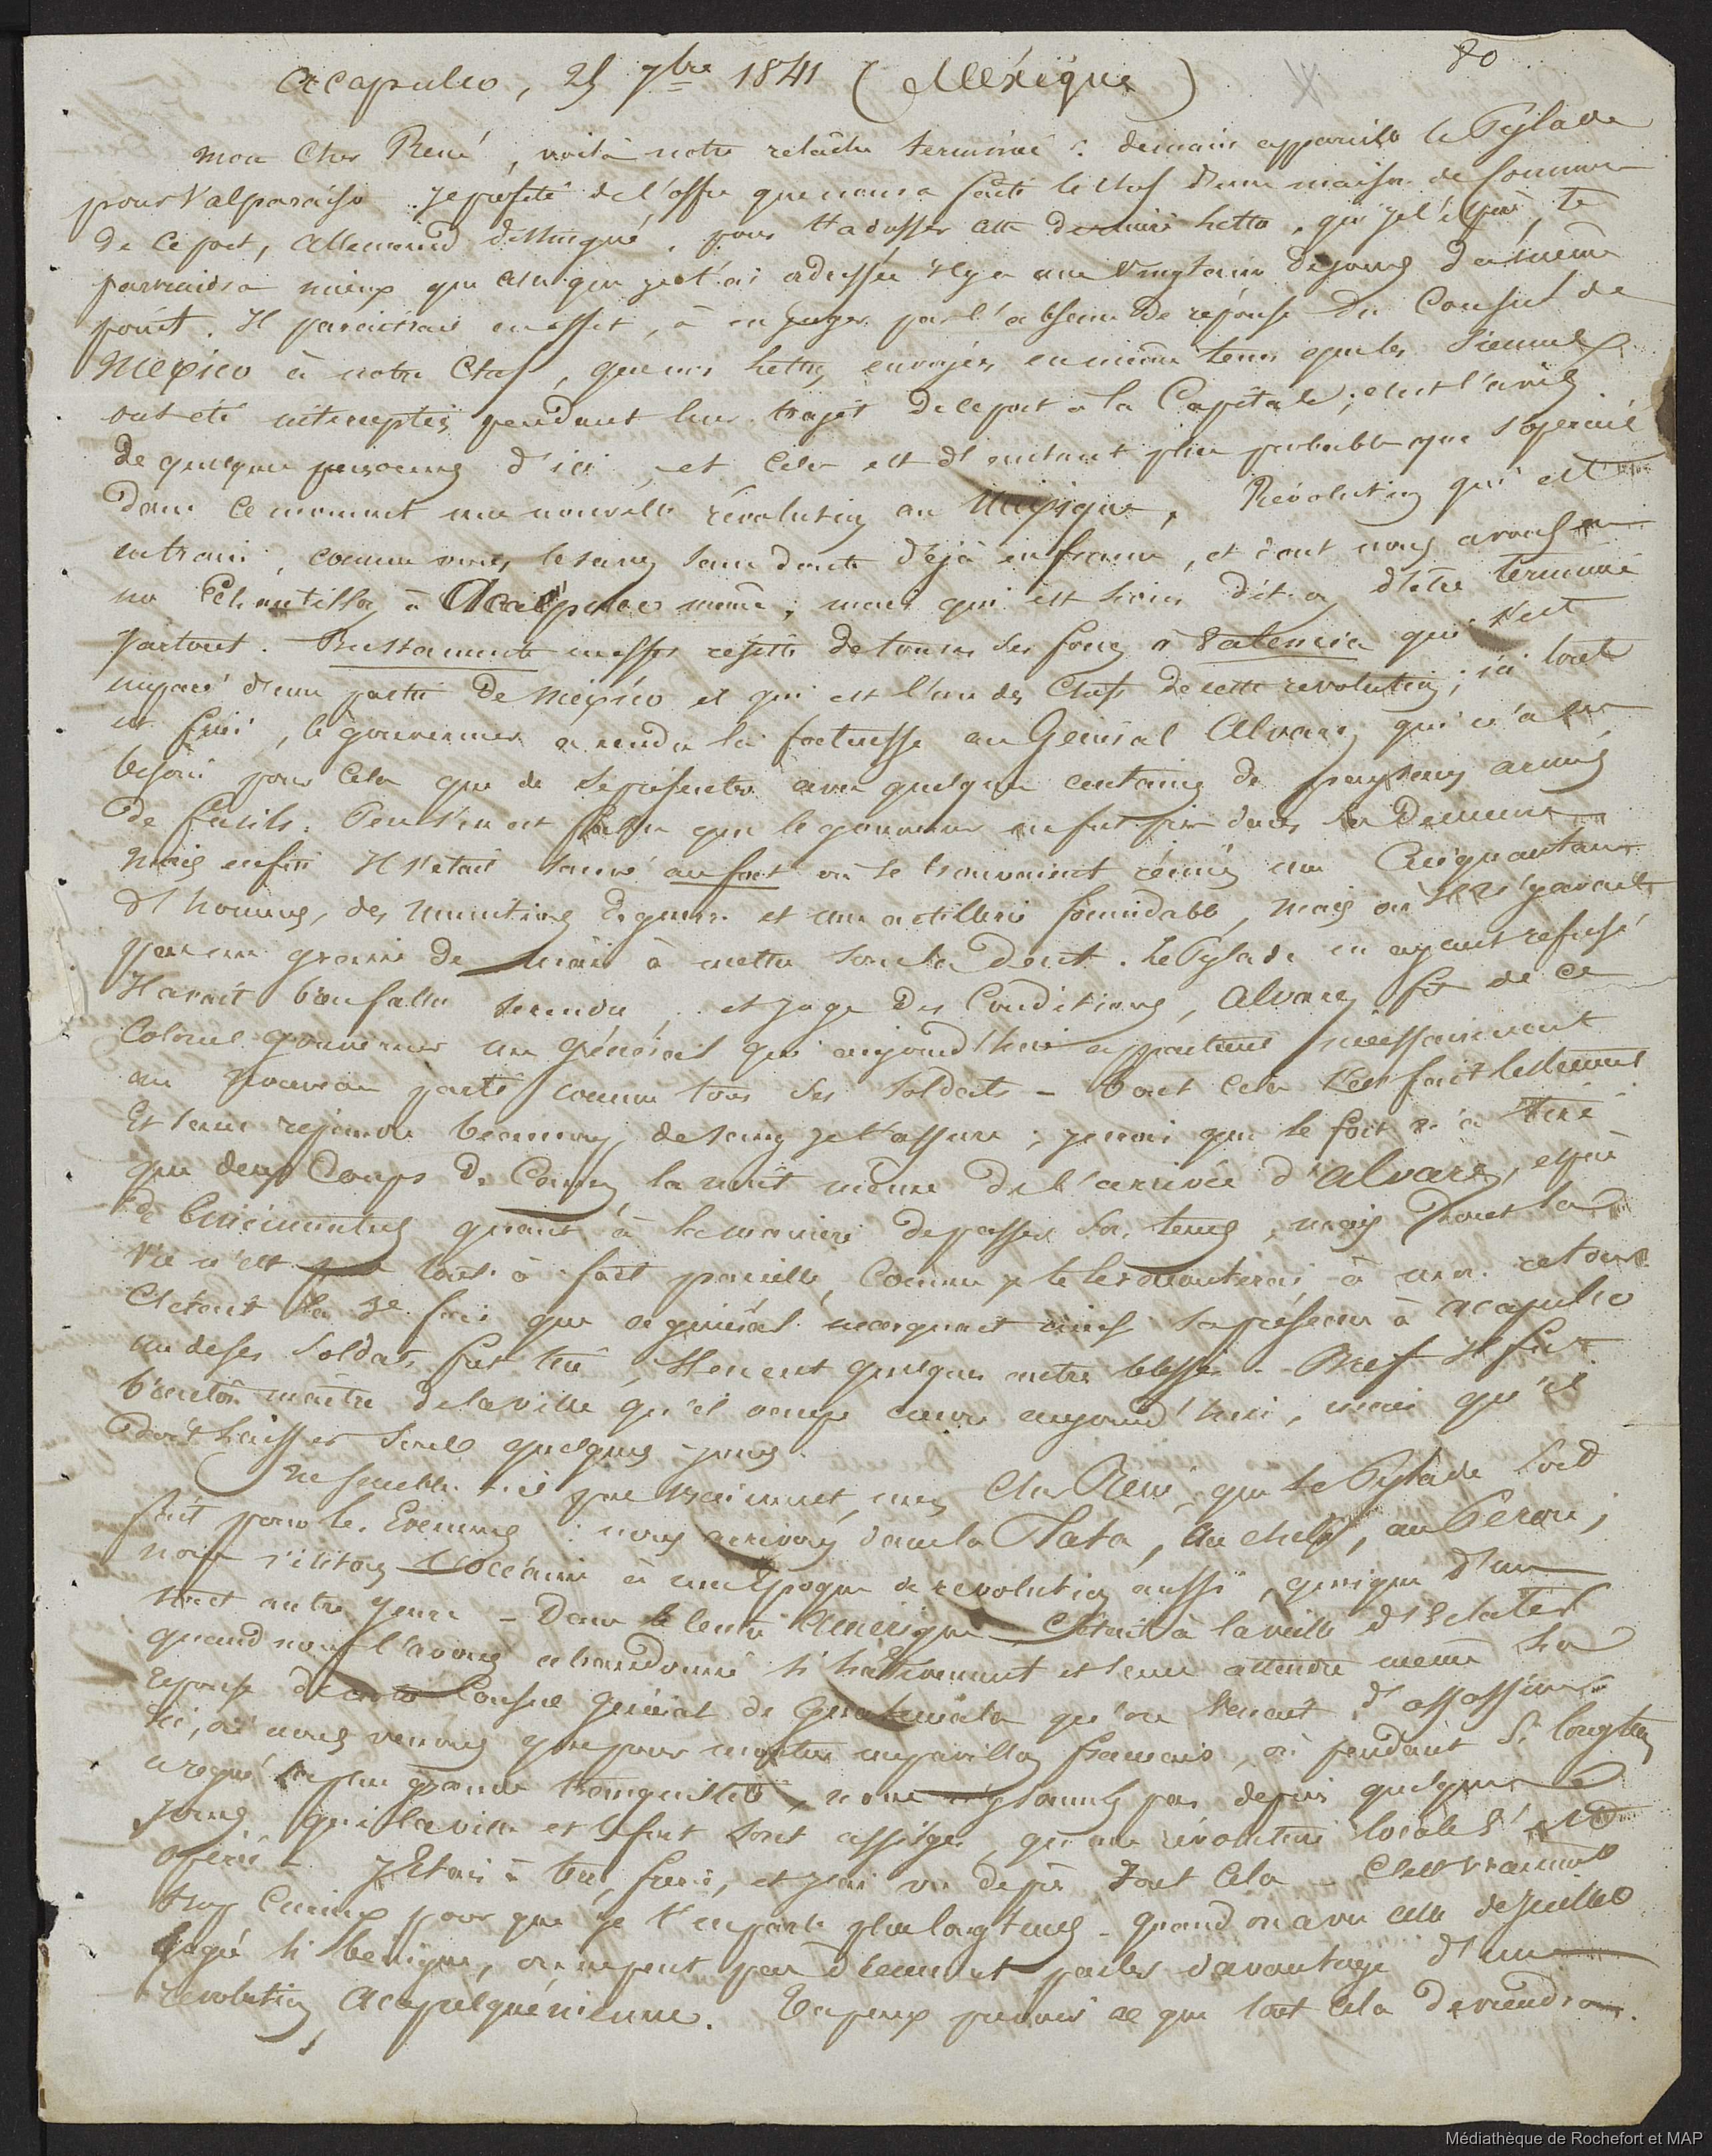 80
Acapulco, 25 7bre 1841 (Méxique)
mon Cher René, voilà notre relâche terminée : demain appareille le Pylade
pour Valparaiso. je profite de l'offre que nous a faite le chef d'une maison de Commerce
de ce port, allemand distingué, pour t'adresser cette dernière lettre, qui je l'espère, te
parviendra mieux que celle que je t'ai adressée il y a une vingtaine de jours du même
point. Il paraitrait en effet, à en juger par l'absence de réponse du Consul de
Mexico à notre Chef, que nos lettres envoyées en même tems que les siennes
ont été interceptées pendant leur trajet de ce port à la Capitale ; c'est l'avis
de quelques personnes d'ici, et cela est d'autant plus probable que s'opère
dans ce moment une nouvelle révolution au Mexique, Révolution qui est
en train, comme vous le savez sans doute déjà en france, et dont nous avons eu
un Echantillon à Acapulco même, mais qui est loin, dit-on, d'être terminée
partout. Bustamente en effet résiste de toutes ses forces à Valencia qui s'est
emparé d'une partie de México et qui est l'un des Chefs de cette revolution ; ici tout
est fini, le gouverneur a rendu la forteresse au Général Alvarez qui n'a eu
besoin pour cela que de se présenter avec quelques centaines de paysans armés
de fusils. Peu s'en est fallu que le gouverneur ne fut pris dans sa Demeure
mais enfin Il s'était sauvé au fort où se trouvaient réunis une Cinquantaine
d'hommes, des munitions de guerre et une artillerie formidable, mais où il n'y avait
pas un grain de maïs à mettre sous la Dent. Le Pylade en ayant refusé
Il avait bien fallu se rendre, et juge des Conditions, Alvarez fit de ce
Colonel gouverneur un général qui aujourd'hui appartient nécessairement
au nouveau parti comme tous ses soldats - tout cela s'est fait lestement
Et sans répandre beaucoup de sang je t'assure ; je crois que le fort n'a tiré
que deux Coups de Canon la nuit même de l'arrivée d'Alvarez, espèce
de Cincinnatus quant à la manière de passer son tems, mais dont la
Vie n'est pas tout à fait pareille, Comme je te le raconterai à mon retour
C'était la 3e fois que ce général marquait ainsi sa présence à Acapulco
un de ses soldats fut tué, il en eut quelques autres blessés. Bref Il fut
bientôt maître de la ville qu'il occupe encore aujourd'hui, mais qu'il
doit laisser sous quelques jours.
Ne semble-t-il pas vraiment, mon Cher René, que le Pylade soit
fait pour les Evenemens : nous arrivons dans la Plata, au chili, au Perou ;
nous visitons l'océanie à une Epoque de revolution aussi, quoique d'un
tout autre genre - Dans le Centre Amérique C'était à la veille d'Eclater
quand nous l'avons abandonné si hâtivement et sans attendre même la
réponse de notre Consul général de Guatemala qu'on venait d'assassiner
Ici, où nous venons que pour montrer un pavillon francais, où pendant si longtems
a regné la plus grande tranquillité, nous n'y sommes pas depuis quelques
jours que la ville et le fort sont assiégés, qu'une révolution locale s'est
opérée - J'étais à terre, Frère, et j'ai vu de près tout cela - C'est vraiment
trop Curieux pour que je t'en parle plus longtems - quand on a vu celle de Juillet
si benigne, on ne peut pas décemment parler davantage d'une
revolution Acapulquénienne. Tu peux prévoir ce que tout cela deviendra.
Médiathèque de Rochefort et MAP